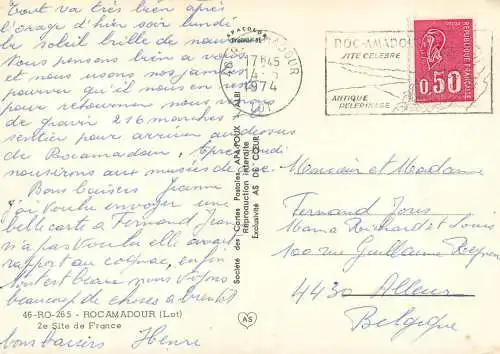 Tout va très bien après
l'orage d'hier soir lundi
le soleil brille de nouveau
Nous pensons bien à vous
et nous usons nos jambes
pourvu qu'il nous en reste
pour retourner nous venons
de gravir 216 marches
sentier pour arriver au dessus
de Rocamadour, Après midi
nous irons au musée de cire.
Bons baisers Jeanne
j'ai voulu envoyer une
belle carte à Fernand Jean
n'a pas voulu elle avait
rapport au cognac, enfin
tout est beau nous voyons
beaucoup de choses à bientôt
46-RO-265 - ROCAMADOUR (Lot)
2e Site de France
bons baisers Henri
Société des Cartes Postales APA-POUX - ALBI
Reproduction interdite
Exclusivité AS DE CŒUR
AS
ROCAMADOUR
17H45
14-
1974
LOT
ROCAMADOUR
SITE CELEBRE
ANTIQUE
PELERINAGE
0,50
REPUBLIQUE FRANÇAISE
Monsieur et Madame
Fernand Joris
Mama Richard et Louis
100 rue Guillaume
4430 Alleur
Belgique